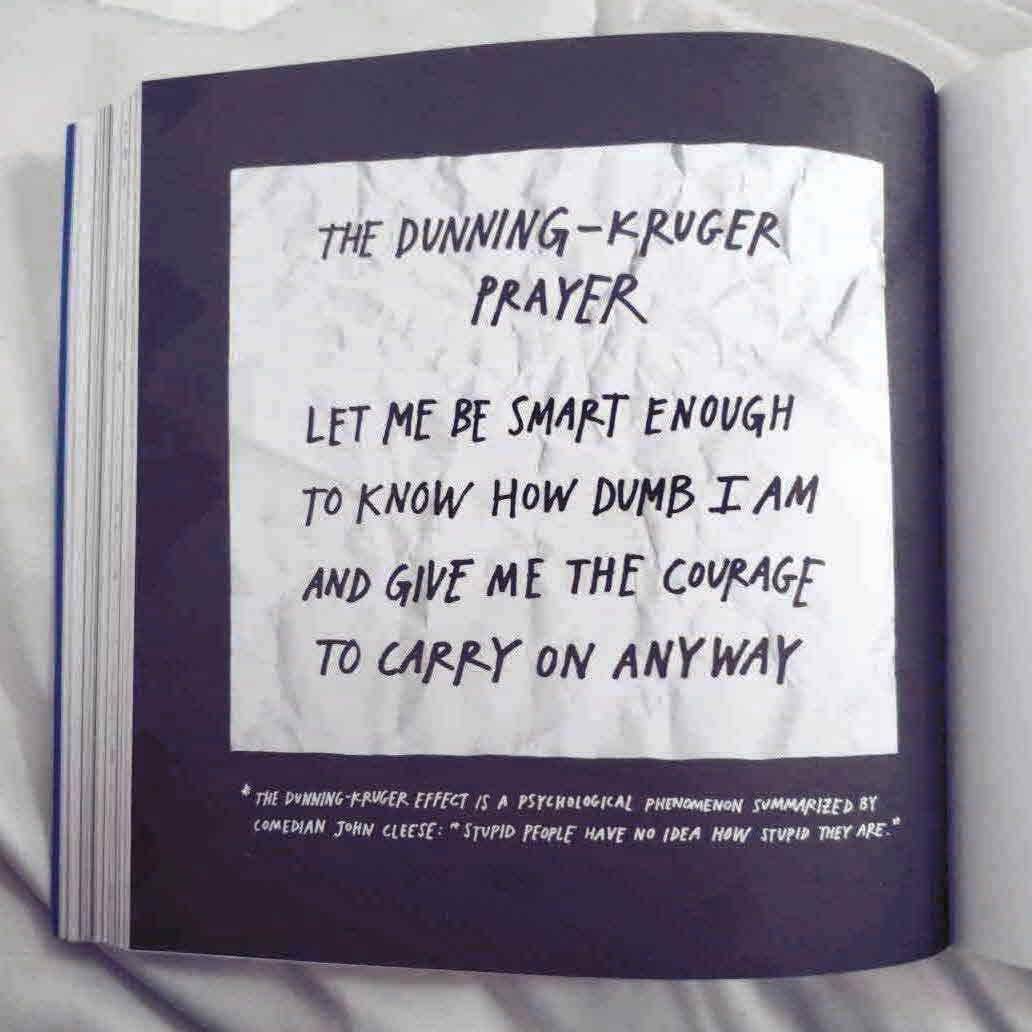 THE DUNNING-KRUGER
PRAYER
LET ME BE SMART ENOUGH
TO KNOW HOW DUMB I AM
AND GIVE ME THE COURAGE
TO CARRY ON ANYWAY
* THE DUNNING-KRUGER EFFECT IS A PSYCHOLOGICAL PHENOMENON SUMMARIZED BY
COMEDIAN JOHN CLEESE: "STUPID PEOPLE HAVE NO IDEA HOW STUPID THEY ARE."